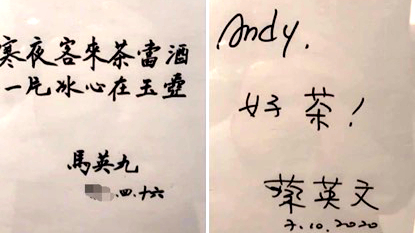 寒夜客來茶當酒
一片冰心在玉壺
馬英九
四.十六
Andy.
好茶!
蔡英文
7.10.2020